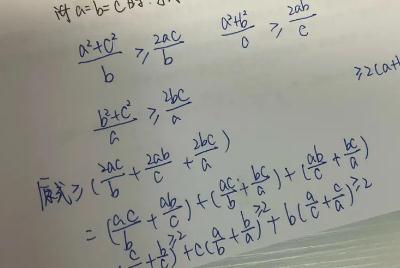 a=b=c时
(a²+c²)/b ≥ 2ac/b (a²+b²)/c ≥ 2ab/c
≥2(a+b
(b²+c²)/a ≥ 2bc/a
原式≥(2ac/b + 2ab/c + 2bc/a)
=(ac/b + ab/c)+(ac/b + bc/a)+(ab/c + bc/a)
c/b + b/c)≥2 + c(a/b + b/a)≥2 + b(a/c + c/a)≥2